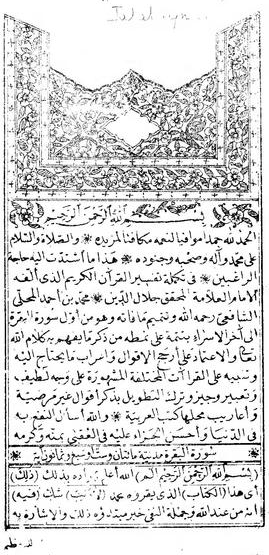 Jalalayn
بسم الله الرحمن الرحيم
الحمد لله حمدا موافيا لنعمه مكافئا لمزيده والصلاة والسلام
على محمد وآله وصحبه وجنوده هذا ما اشتدت اليه حاجة
الراغبين في تكملة تفسير القرآن الكريم الذى ألفه
الامام العلامة المحقق جلال الدين محمد بن أحمد المحلى
الشافعى رحمه الله وتتميم ما فاته وهو من أول سورة البقرة
الى آخر الاسراء بتتمة على نمطه من ذكر ما يفهم به كلام الله
تعالى والاعتماد على أرجح الاقوال واعراب ما يحتاج اليه
وتنبيه على القراآت المختلفة المشهورة على وجه لطيف
وتعبير وجيز وترك التطويل بذكر أقوال غير مرضية
وأعاريب محلها كتب العربية والله أسأل النفع به
فى الدنيا وأحسن الجزاء عليه فى العقبى بمنه وكرمه
سورة البقرة مدنية مائتان وست أو سبع وثمانون آية
(بسم الله الرحمن الرحيم الم) الله أعلم بمراده بذلك (ذلك)
أى هذا (الكتاب) الذى يقرؤه محمد (لا ريب) شك (فيه)
أنه من عند الله وجملة النفى خبر مبتدؤه ذلك والاشارة به